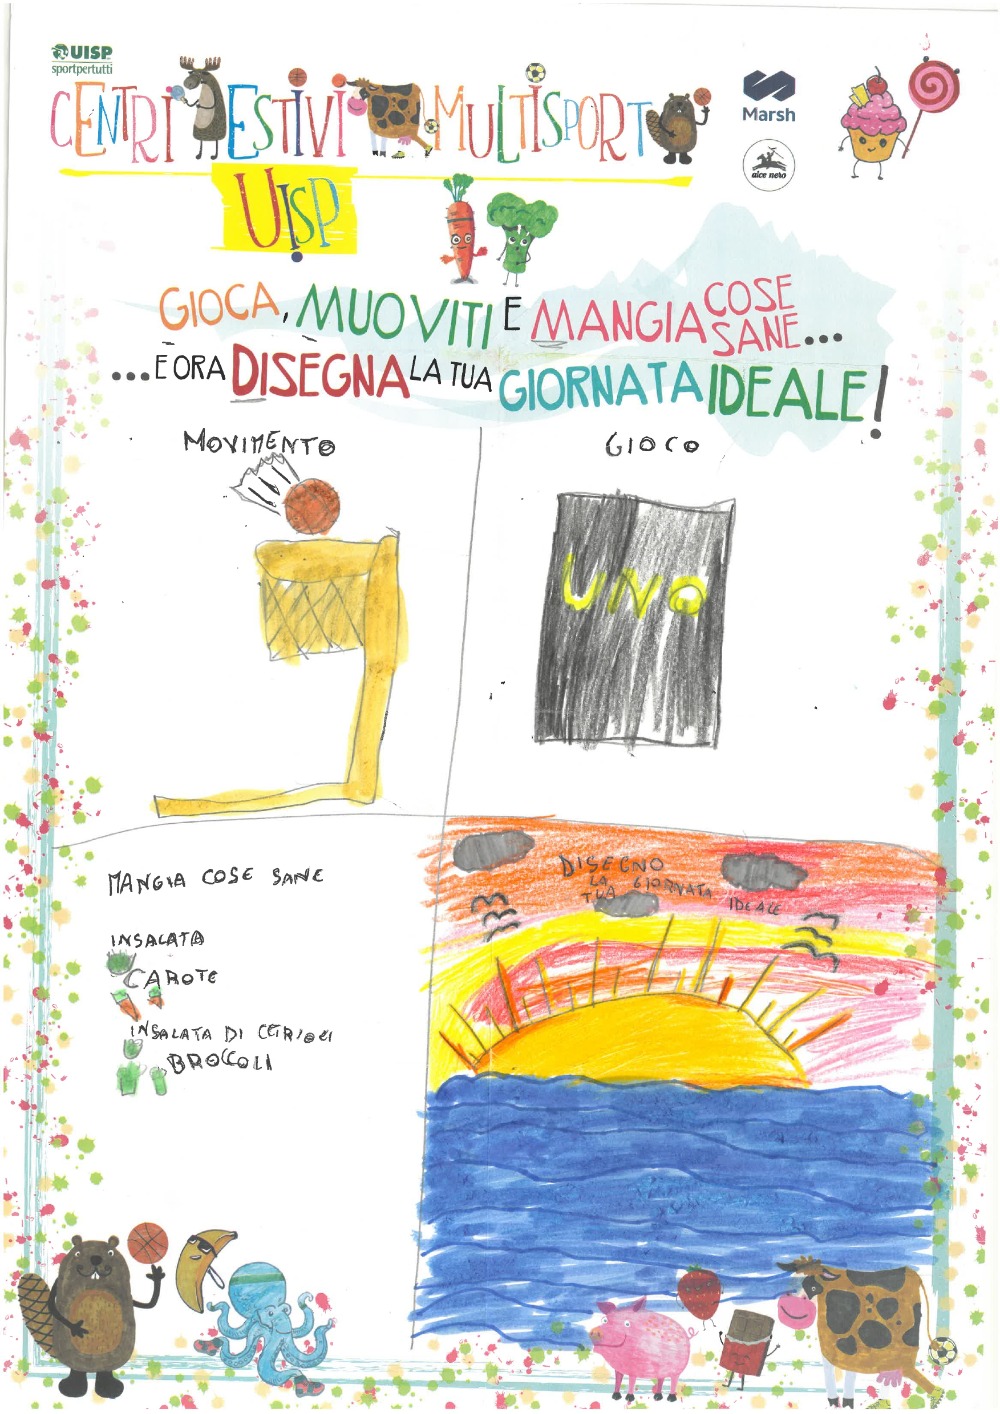 UISP
sportpertutti
CENTRI ESTIVI MULTISPORT
UISP
Marsh
alce nero
GIOCA, MUOVITI E MANGIA COSE SANE...
...E ORA DISEGNA LA TUA GIORNATA IDEALE!
MOVIMENTO
GIOCO
UNO
MANGIA COSE SANE
INSALATA
CAROTE
INSALATA DI
BROCCOLI
DISEGNO
LA GIORNATA
TUA IDEALE